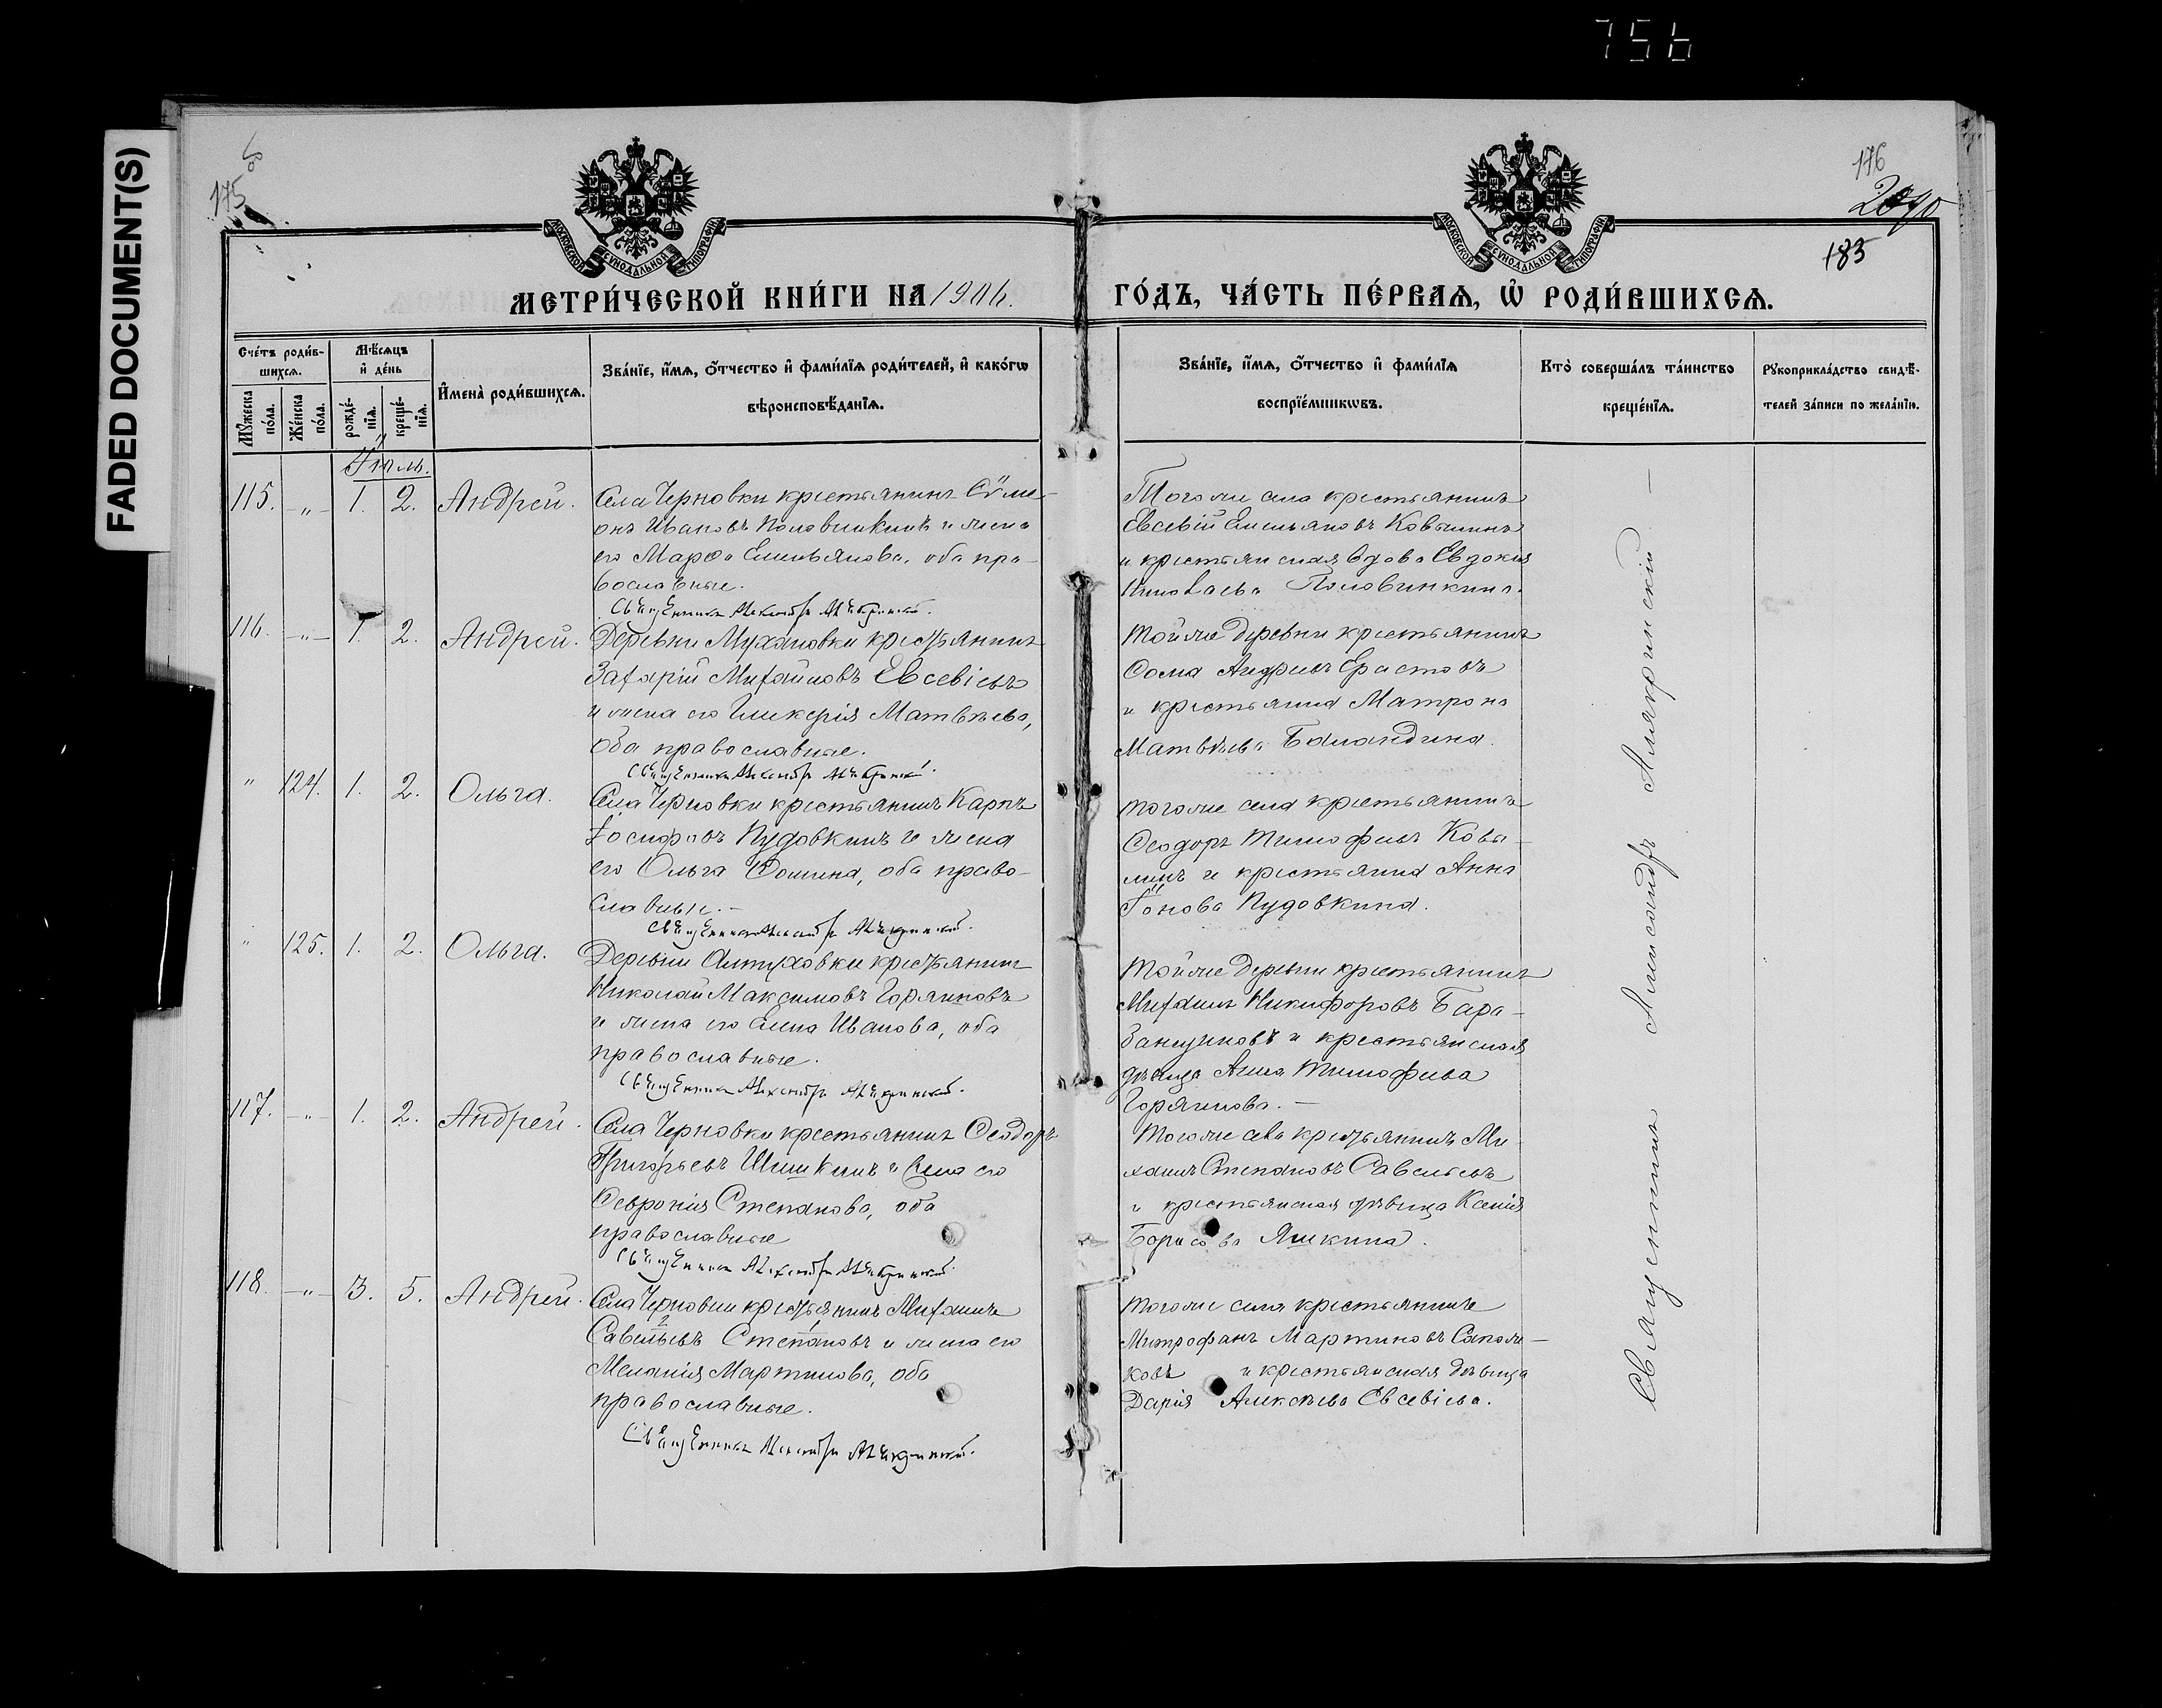 756
FADED DOCUMENT(S)
175 об
176
183
МОСКОВСКОЙ СѴНОДАЛЬНОЙ ТИПОГРАФІИ
МОСКОВСКОЙ СѴНОДАЛЬНОЙ ТИПОГРАФІИ
МЕТРИ́ЧЕСКОЙ КНИ́ГИ НА 1906.
ГО́ДЪ, ЧА́СТЬ ПЕ́РВАѦ, Ѡ҆ РОДИ́ВШИХСѦ.
Сче́тъ роди́в-
шихсѧ.
Мꙋ́жеска по́ла.
Же́нска по́ла.
Мѣ́сѧцъ и҆ де́нь
рожде́-нїѧ.
креще́-нїѧ.
И҆мена̀ роди́вшихсѧ.
Зва́нїе, и҆́мѧ, ѻ҆́тчество и҆ фами́лїѧ роди́телей, и҆ како́гѡ
вѣроисповѣ́данїѧ.
Зва́нїе, и҆́мѧ, ѻ҆́тчество и҆ фами́лїѧ
воспрїе́мникѡвъ.
Кто̀ соверша́лъ та́инство
креще́нїѧ.
Рꙋкоприкла́дство свидѣ́-
телей за́писи по жела́нїю.
Іюль.
115. -„- 1. 2. Андрей.
Села Черновки крестьянинъ Сѵме-
онъ Ивановъ Половинкинъ и жена
его Марѳа Емельянова, оба пра-
вославные.
Священникъ Александръ Алякринскій.
Того же села крестьянинъ
Евсевій Емельяновъ Ковылинъ
и крестьянская вдова Евдокія
Николаева Половинкина.
116. -„- 1. 2. Андрей.
Деревни Мухановки крестьянинъ
Захарій Михайловъ Евсевіевъ
и жена его Гликерія Матвѣева,
оба православные.
Священникъ Александръ Алякринскій.
Той же деревни крестьянинъ
Ѳома Андреевъ Ерастовъ
и крестьянка Матрона
Матвѣева Баландина.
„ 124. 1. 2. Ольга.
Села Черновки крестьянинъ Карпъ
Іосифовъ Пудовкинъ и жена
его Ольга Ѳомина, оба право-
славные.-
Священникъ Александръ Алякринскій.
Того же села крестьянинъ
Ѳеодоръ Тимофеевъ Ковы-
линъ и крестьянка Анна
Іонова Пудовкина.
„ 125. 1. 2. Ольга.
Деревни Алтуховки крестьянинъ
Николай Максимовъ Горяиновъ
и жена его Елена Иванова, оба
православные.
Священникъ Александръ Алякринскій.
Той же деревни крестьянинъ
Михаилъ Никифоровъ Бара-
банщиковъ и крестьянская
дѣвица Анна Тимофеева
Горяинова.-
117. -„- 1. 2. Андрей.
Села Черновки крестьянинъ Ѳеодоръ
Григорьевъ Шишкинъ и жена его
Ѳевронія Степанова, оба
православные
Священникъ Александръ Алякринскій.
Того же села крестьянинъ Ми-
хаилъ Степановъ Савельевъ
и крестьянская дѣвица Ксенія
Борисова Яшкина.
118. -„- 3. 5. Андрей.
Села Черновки крестьянинъ Михаилъ
Савельевъ Степановъ и жена его
Меланія Мартинова, оба
православные.
Священникъ Александръ Алякринскій.
Того же села крестьянинъ
Митрофанъ Мартиновъ Сапож-
ковъ и крестьянская дѣвица
Дарія Алексѣева Евсевіева.
Священникъ Александръ Алякринскій —